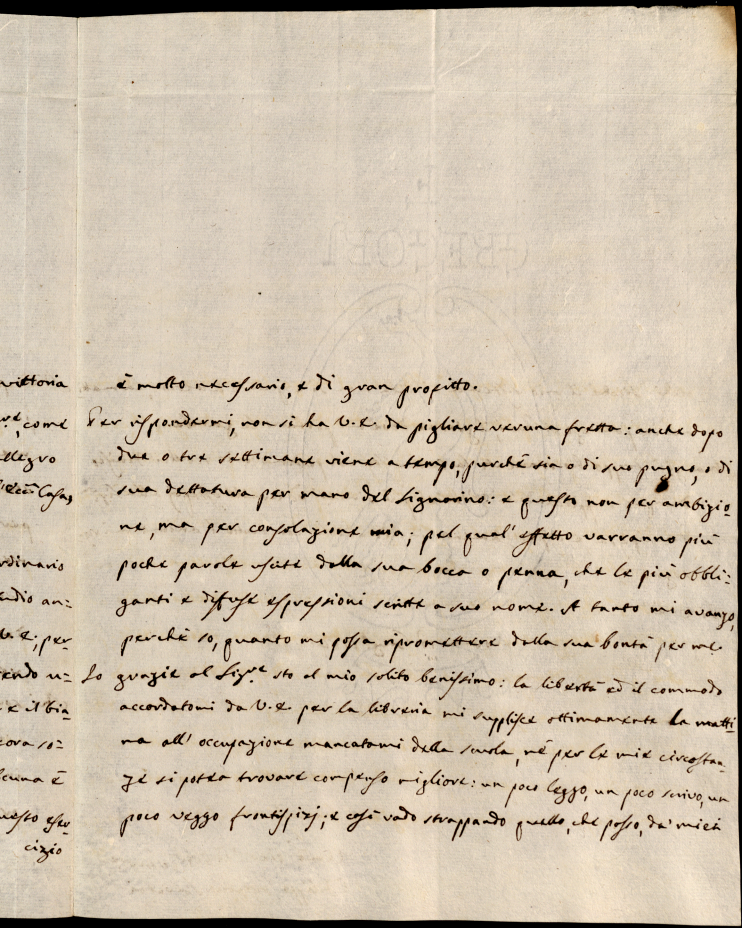 vittoria
re, come
allegro
Casa,
ordinario
udio an=
V. E., per-
endo u=
e il bia-
cora so=
lcuna è
uesto eser-
cizio
è molto necessario, e di gran profitto.
Per rispondermi, non si ha V. E. da pigliare veruna fretta: anche dopo
due o tre settimane viene a tempo, purché sia o di suo pugno, o di
sua dettatura per mano del Signorino: e questo non per ambizio=
ne, ma per consolazione mia; pel qual' effetto varranno più
poche parole uscite dalla sua bocca o penna, che le più obbli=
ganti e diffuse espressioni scritte a suo nome. A tanto mi avanzo,
perché so, quanto mi possa ripromettere dalla sua bontà per me.
Io grazie al Sigre sto al mio solito benissimo: la libertà ed il commodo
accordatomi da V. E. per la libreria mi supplisce ottimamente la matti=
na all' occupazione mancatami della scuola, nè per le mie circostan=
ze si potea trovare compenso migliore: un poco leggo, un poco scrivo, un
poco veggo frontispizj; e così vado strappando quello, che posso, da' miei
GREGORI